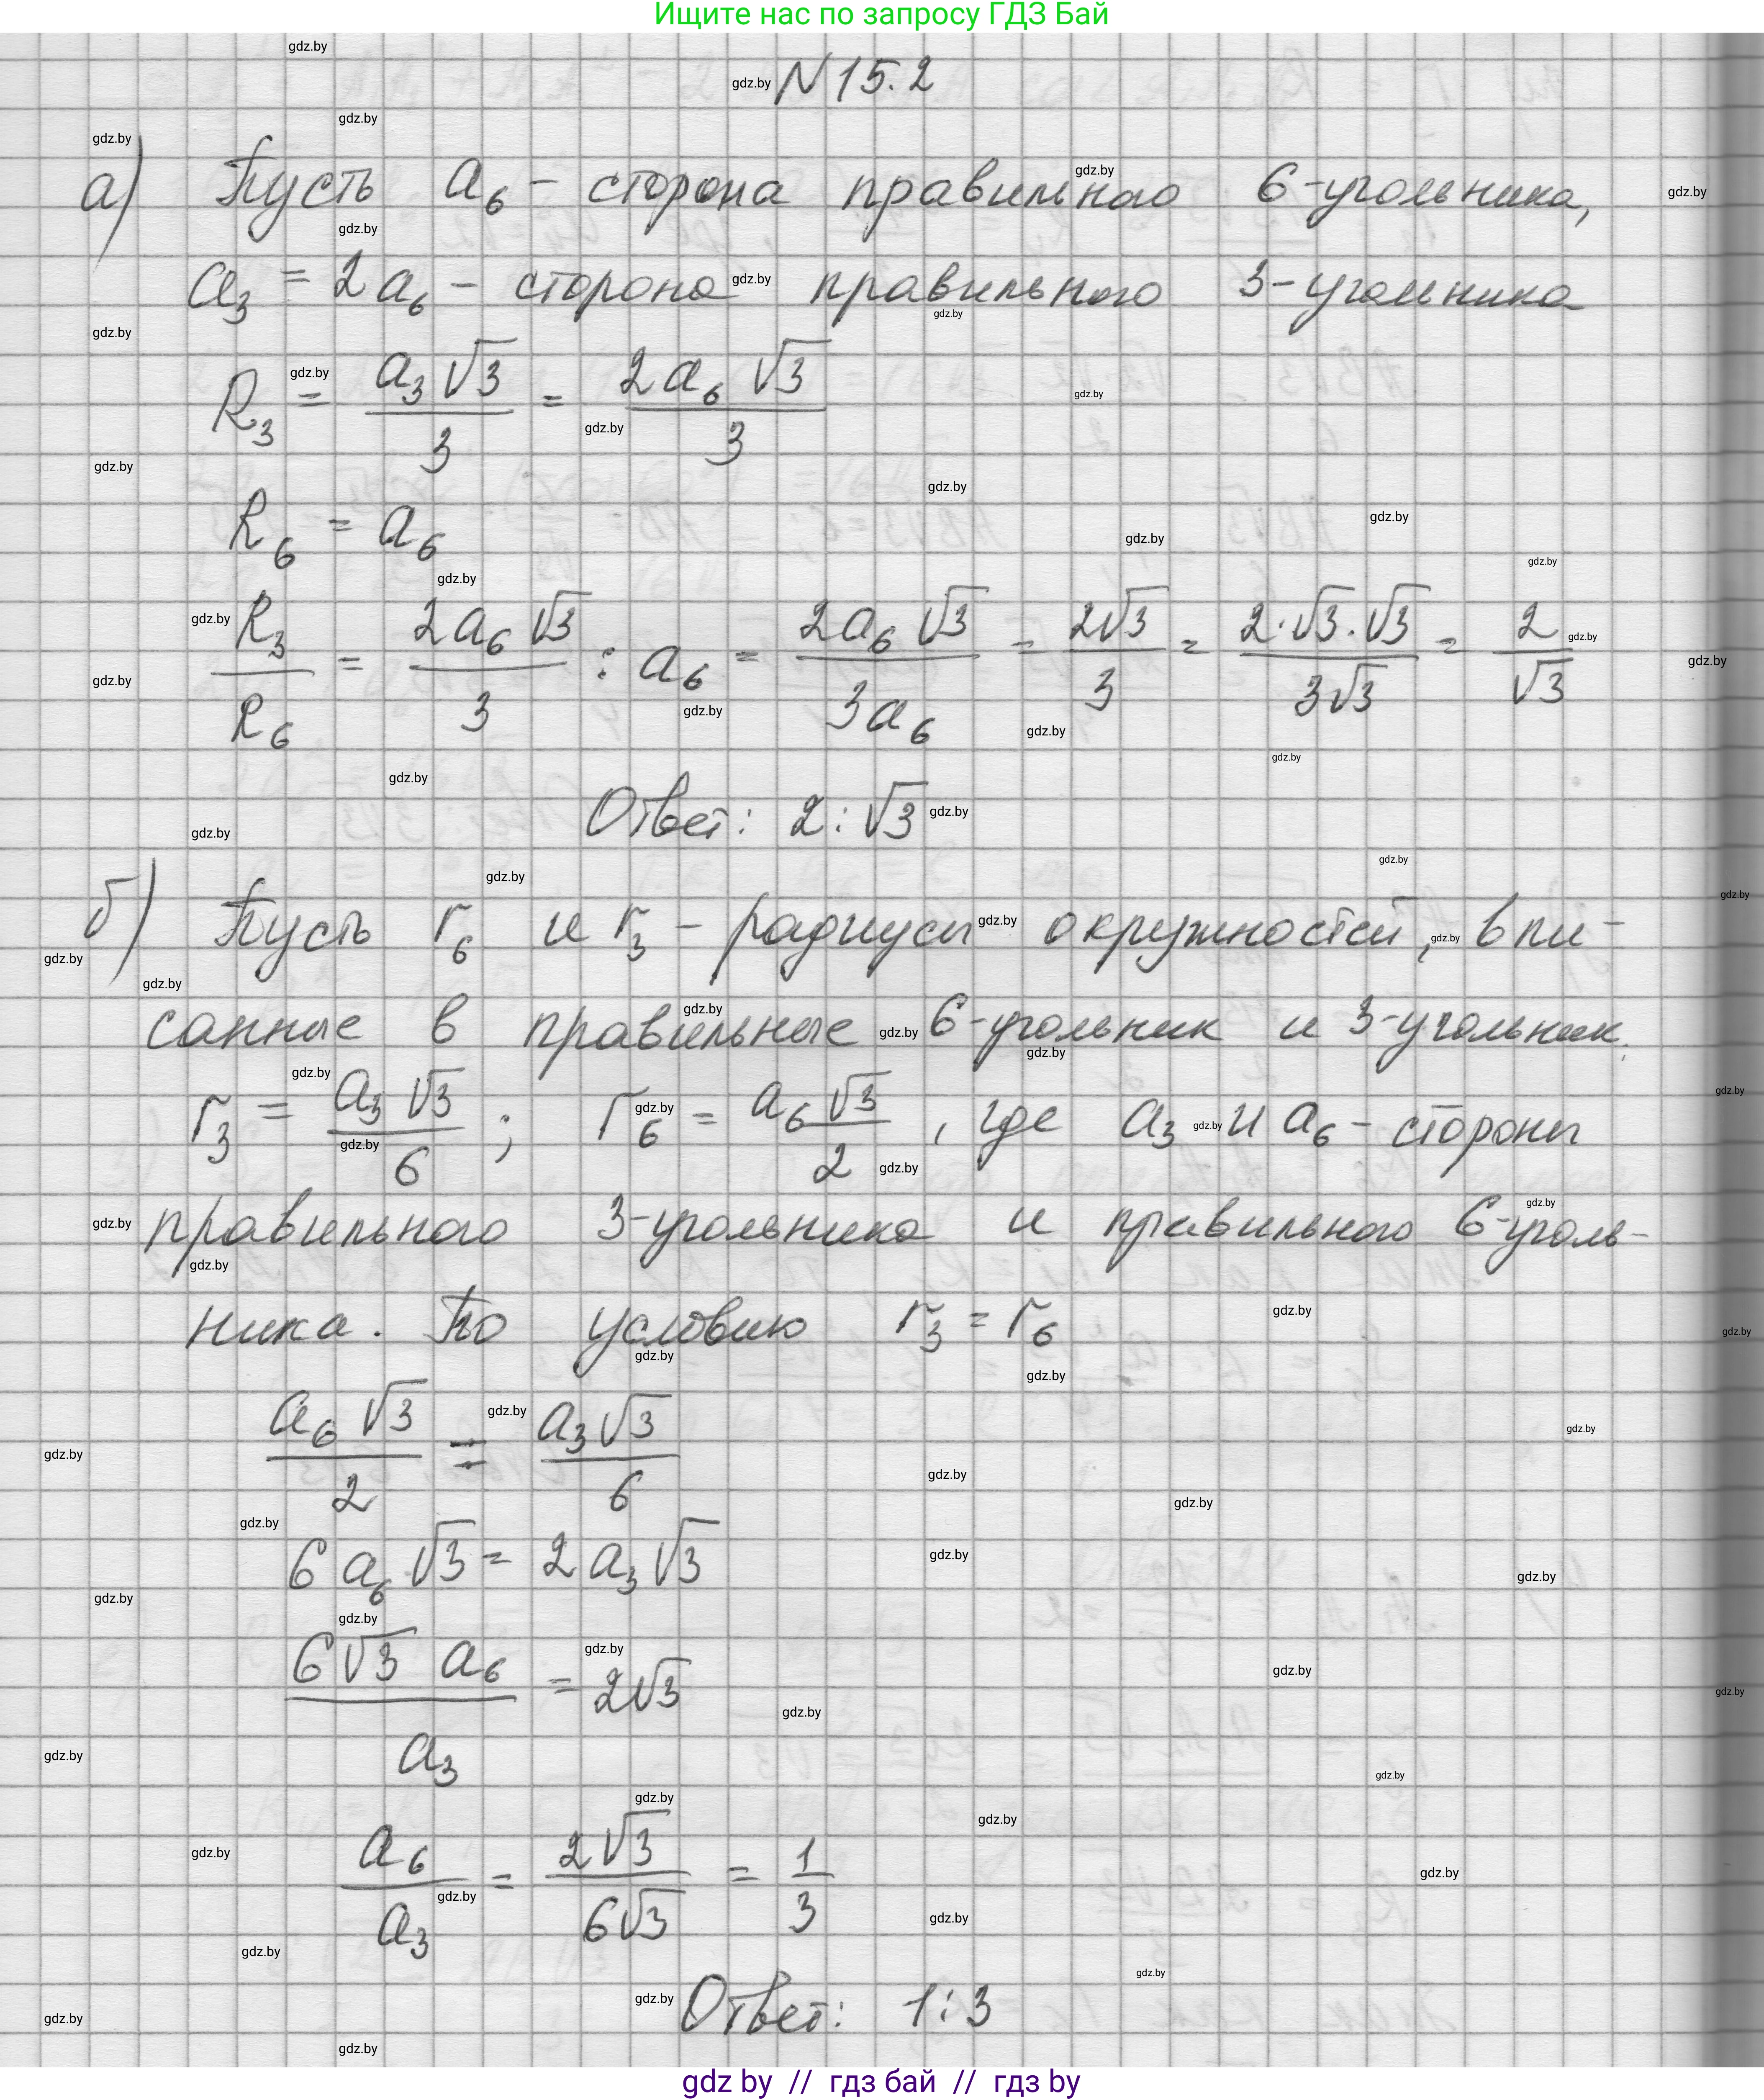 Ищите нас по запросу ГДЗ Бай
N 15.2
а) Пусть a₆ - сторона правильного 6-угольника,
a₃ = 2a₆ - сторона правильного 3-угольника
R₃ = a₃√3/3 = 2a₆√3/3
R₆ = a₆
R₃/R₆ = 2a₆√3/3 : a₆ = 2a₆√3/3a₆ = 2√3/3 = 2·√3·√3/3√3 = 2/√3
Ответ: 2:√3
б) Пусть r₆ и r₃ - радиусы окружностей, впи-
санные в правильные 6-угольник и 3-угольник.
r₃ = a₃√3/6 ; r₆ = a₆√3/2, где a₃ и a₆ - стороны
правильного 3-угольника и правильного 6-уголь-
ника. По условию r₃ = r₆
a₆√3/2 = a₃√3/6
6a₆√3 = 2a₃√3
6√3 a₆/a₃ = 2√3
a₆/a₃ = 2√3/6√3 = 1/3
Ответ: 1:3
gdz by // гдз бай // гдз by